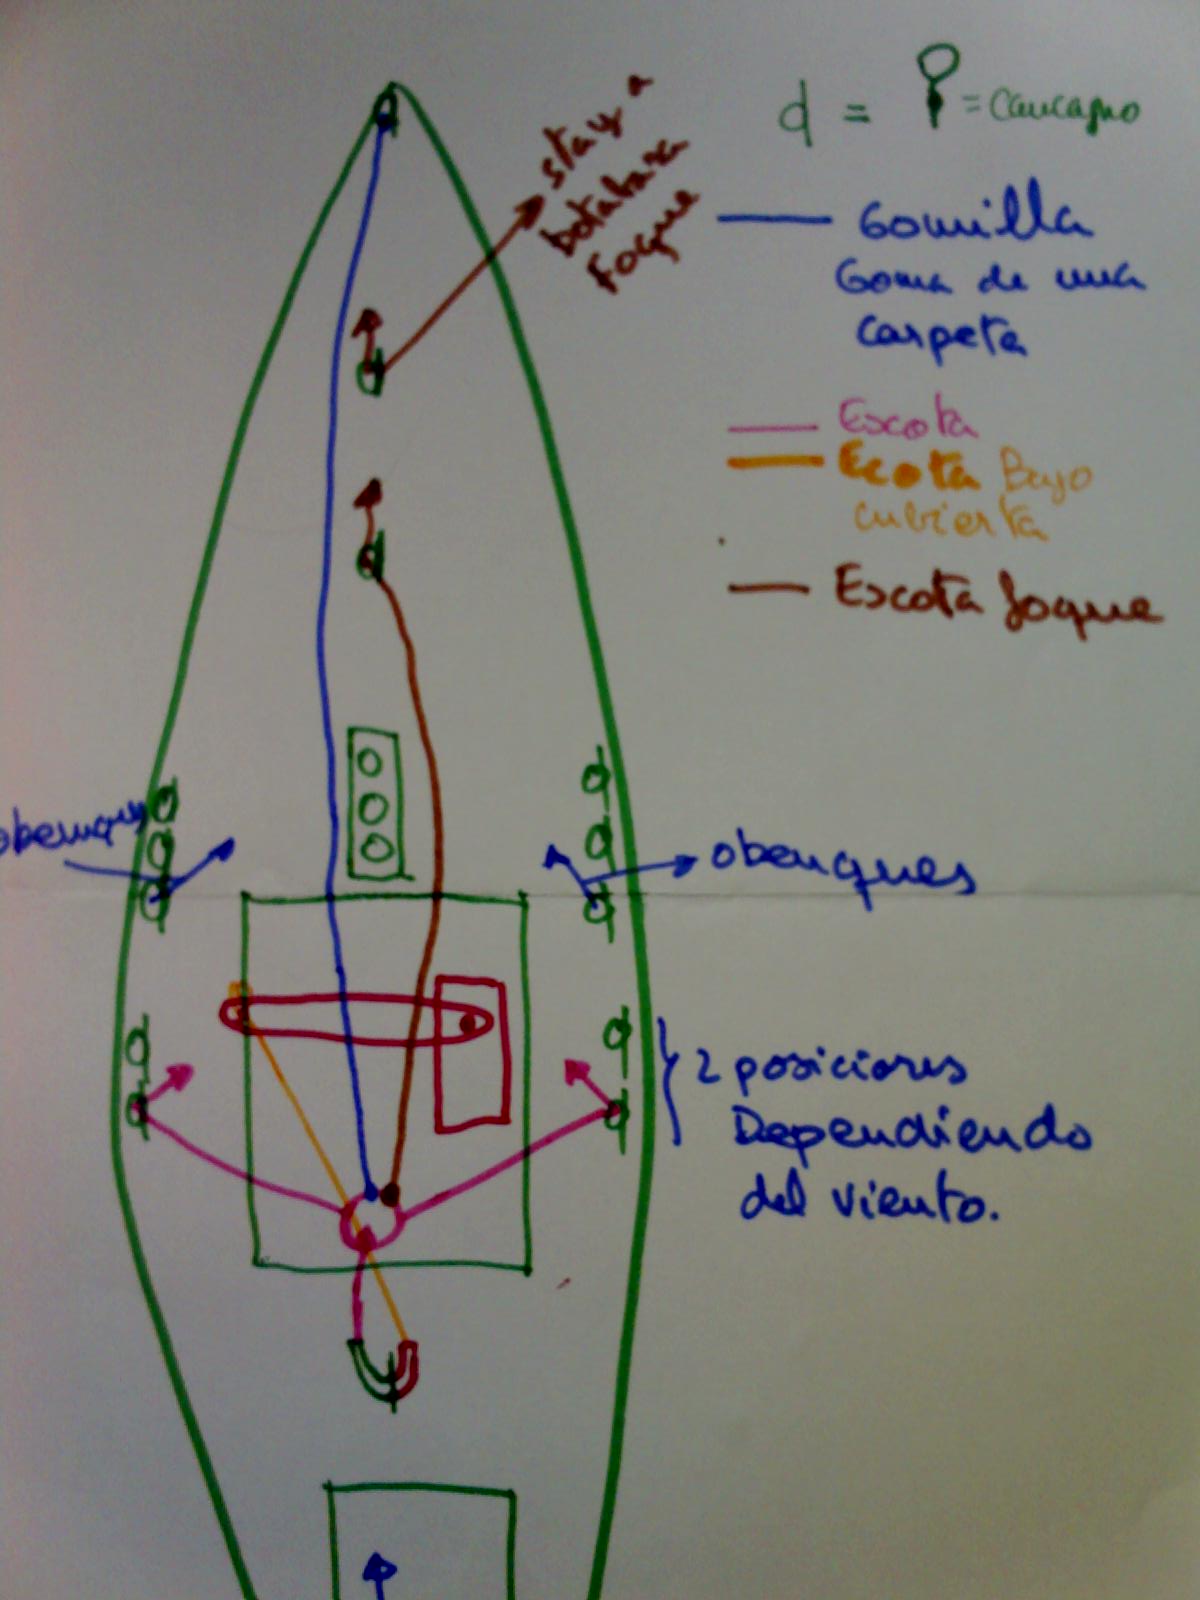 stay a
botabara
foque
d = = Caucamo
Gomilla
Goma de una
carpeta
Escota
Ecota Bajo
cubierta
Escota foque
obenques
obenques
2 posiciones
Dependiendo
del viento.